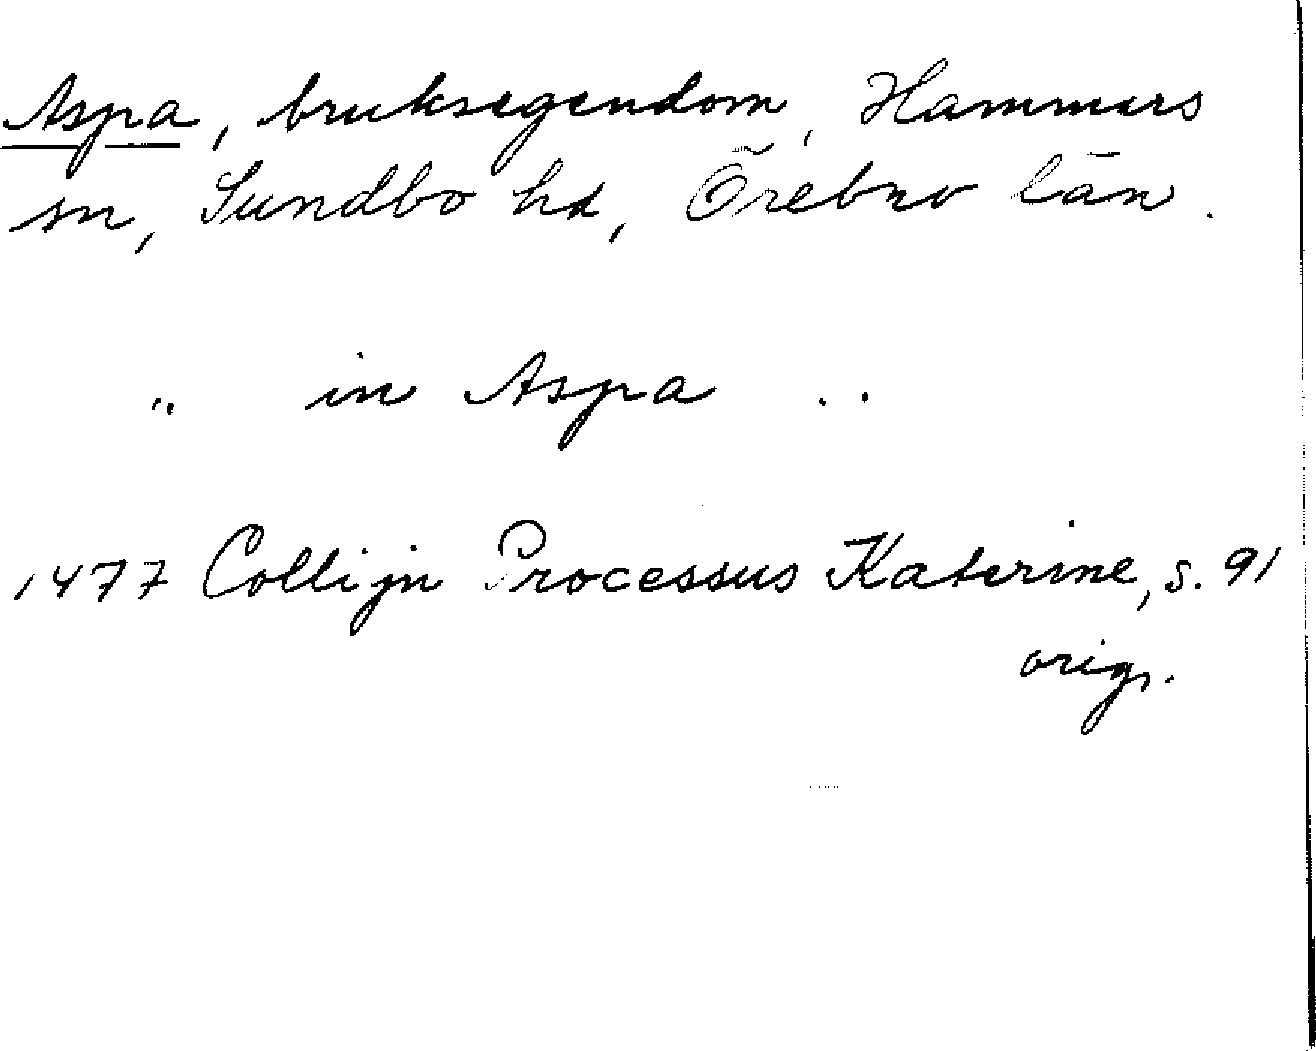 Aspa, bruksegendom, Hammars
sn, Sundbo hd, Örebro län.
" in Aspa ..
1477 Collijn Processus Katerine, s. 91
orig.